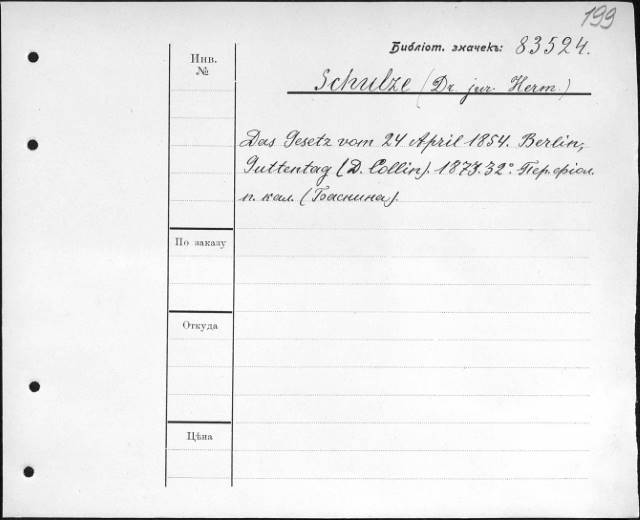 199
Библіот. значекъ: 83524.
Инв.
№
Schulze (Dr. jur. Herm.)
Das Gesetz vom 24 April 1854. Berlin,
Guttentag (D. Collin). 1873. 32°. Пер. фіол.
п. кал. (Баснина).
По заказу
Откуда
Цѣна